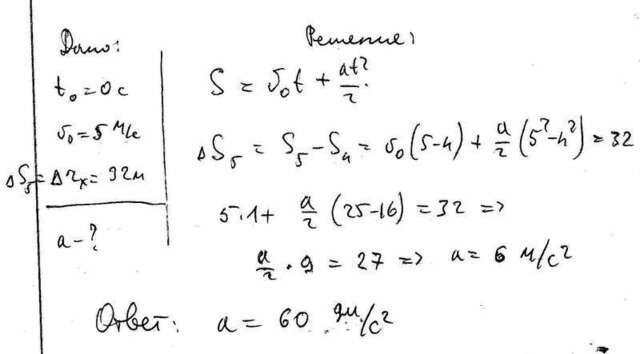 Дано:
t₀ = 0 c
v₀ = 5 м/с
ΔS₅ = Δr_x = 32 м
a - ?
Решение:
S = v₀t + at²/2.
ΔS₅ = S₅ - S₄ = v₀(5-4) + a/2 (5² - 4²) = 32
5·1 + a/2 (25-16) = 32 =>
a/2 · 9 = 27 => a = 6 м/с²
Ответ: a = 60 дм/с²